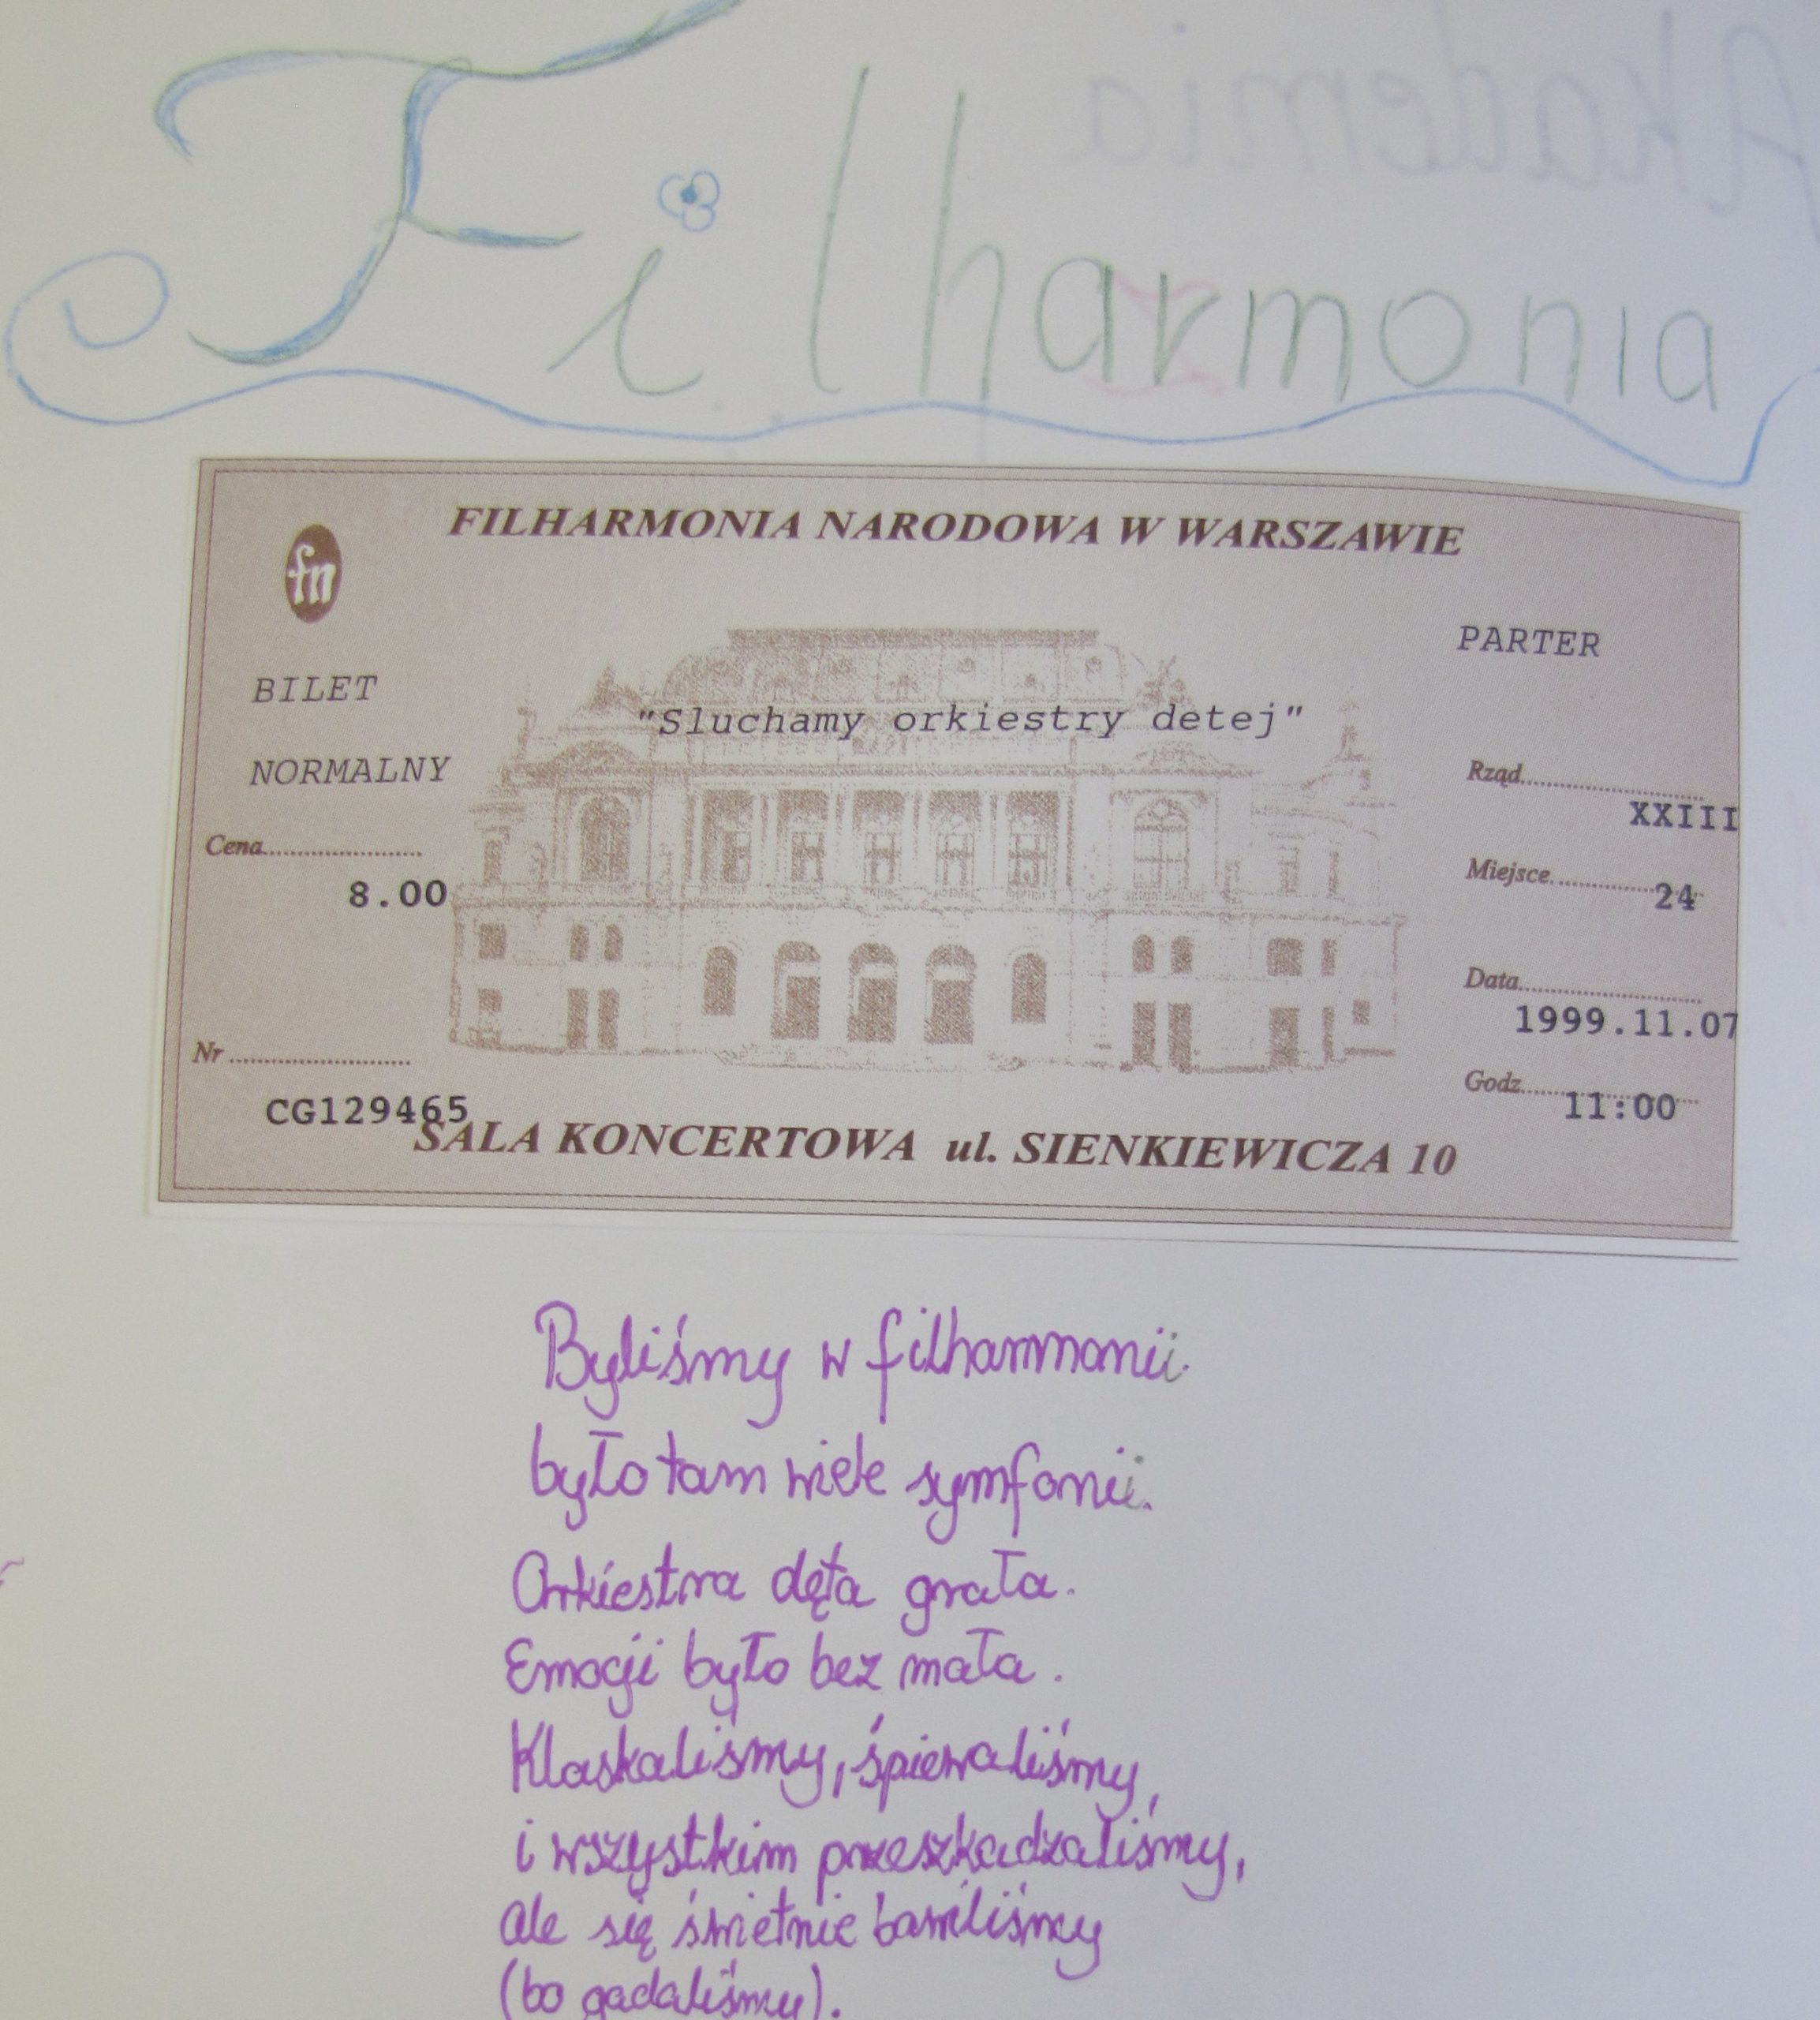 Akademia
Filharmonia
FILHARMONIA NARODOWA W WARSZAWIE
fn
PARTER
BILET
"Sluchamy orkiestry detej"
NORMALNY
Rząd
XXIII
Cena
8.00
Miejsce
24
Data
1999.11.07
Nr
Godz.
11:00
CG129465
SALA KONCERTOWA ul. SIENKIEWICZA 10
Byliśmy w filharmonii
było tam wiele symfonii.
Orkiestra dęta grała.
Emocji było bez mała.
Klaskaliśmy, śpiewaliśmy,
i wszystkim przeszkadzaliśmy,
ale się świetnie bawiliśmy
(bo gadaliśmy).